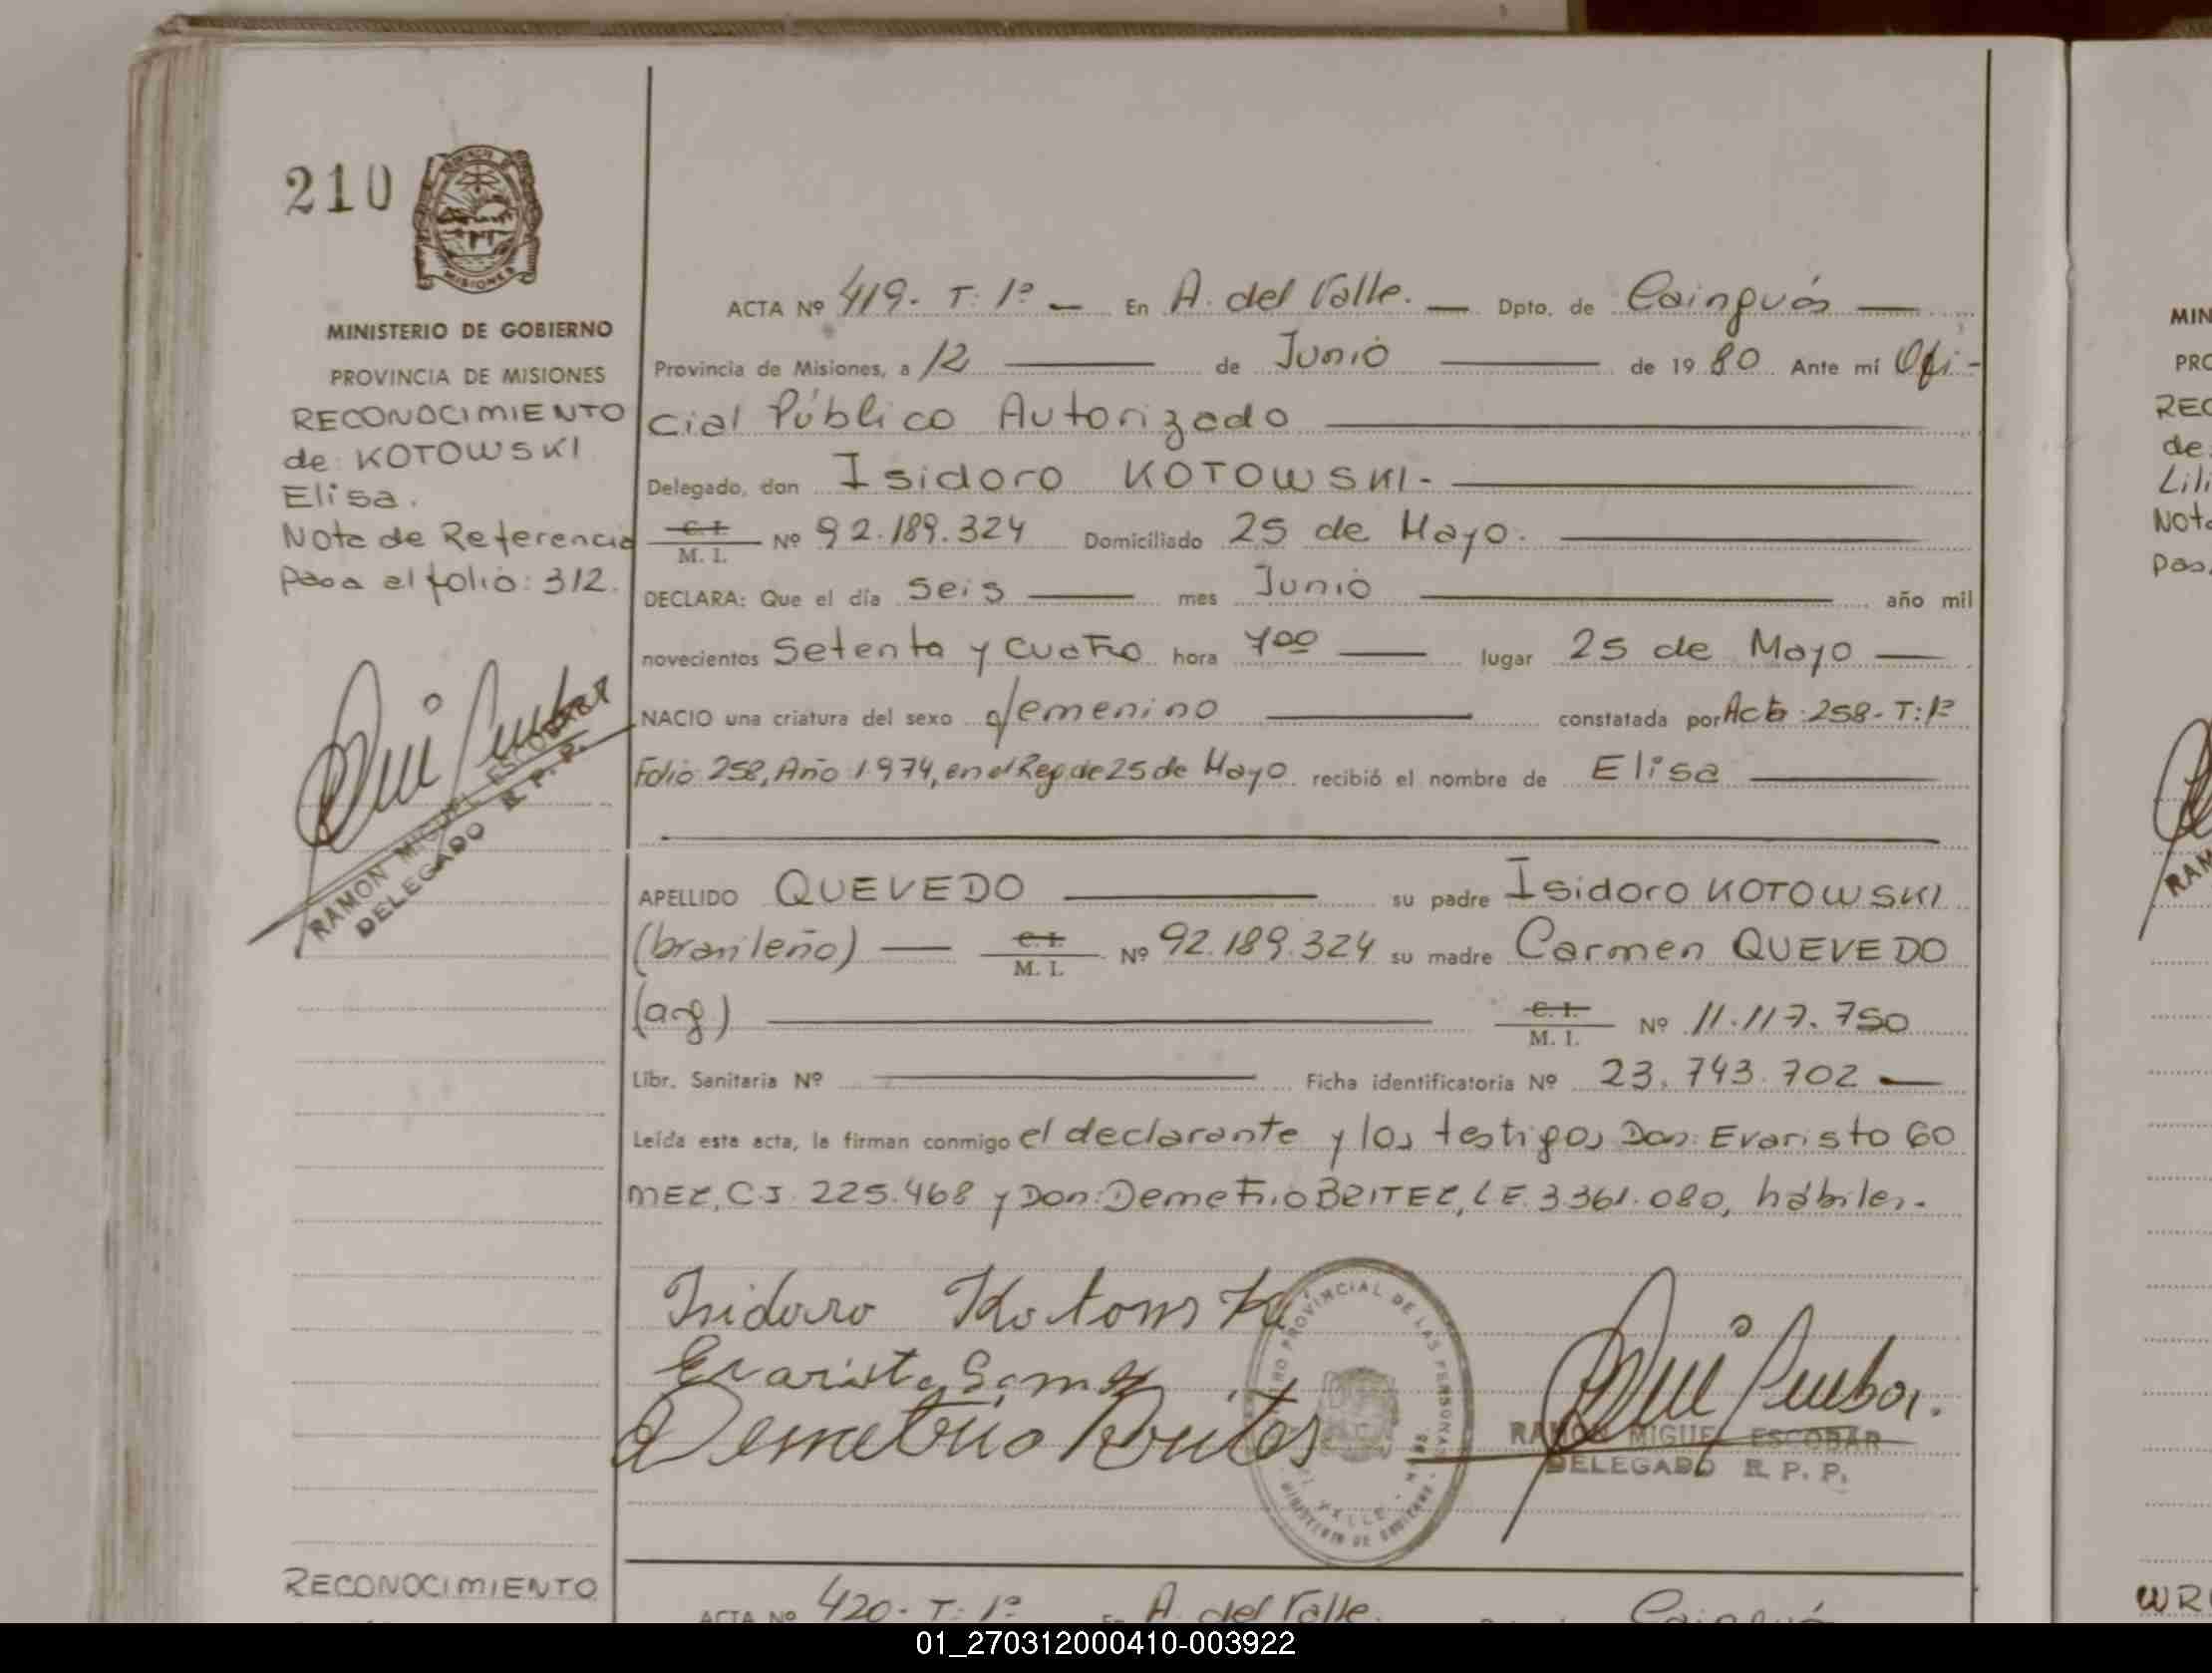 210
PROVINCIA DE
MISIONES
MINISTERIO DE GOBIERNO
PROVINCIA DE MISIONES
RECONOCIMIENTO
de KOTOWSKI
Elisa.
Nota de Referencia
Pasa al folio: 312.
RAMON MIGUEL ESCOBAR
DELEGADO R. P. P.
ACTA Nº 419- T: 1º — En A. del Valle. — Dpto. de Cainguás —
Provincia de Misiones, a 12 — de Junio — de 1980 Ante mí Ofi-
cial Público Autorizado —
Delegado, don Isidoro KOTOWSKI- —
C. I.
M. I. Nº 92.189.324 Domiciliado 25 de Mayo. —
DECLARA: Que el día Seis — mes Junio — año mil
novecientos Setenta y cuatro hora 7oo — lugar 25 de Mayo —
NACIO una criatura del sexo femenino — constatada por Acta: 258- T: 1º
Folio 258, Año 1974, en el Reg. de 25 de Mayo recibió el nombre de Elisa —
APELLIDO QUEVEDO — su padre Isidoro KOTOWSKI
(brasileño) — C. I.
M. I. Nº 92.189.324 su madre Carmen QUEVEDO
(arg) — C. I.
M. I. Nº 11.117.750
Libr. Sanitaria Nº — Ficha identificatoria Nº 23.743.702 —
Leída esta acta, la firman conmigo el declarante y los testigos Don: Evaristo GO
MEZ, C.I. 225.468 y Don: Demetrio BRITEZ, L.E. 3.361.080, hábiles.-
Isidoro Kotowski
Evaristo Gomez
Demetrio Britez
PROVINCIAL DE LAS PERSONAS
VALLE
MINISTERIO DE
RAMON MIGUEL ESCOBAR
DELEGADO R. P. P.
RECONOCIMIENTO
ACTA Nº 420- T: 1º En A. del Valle. Cainguás
MIN
PRO
REC
de
Lili
Nota
Pas
RAM
WR
01_270312000410-003922